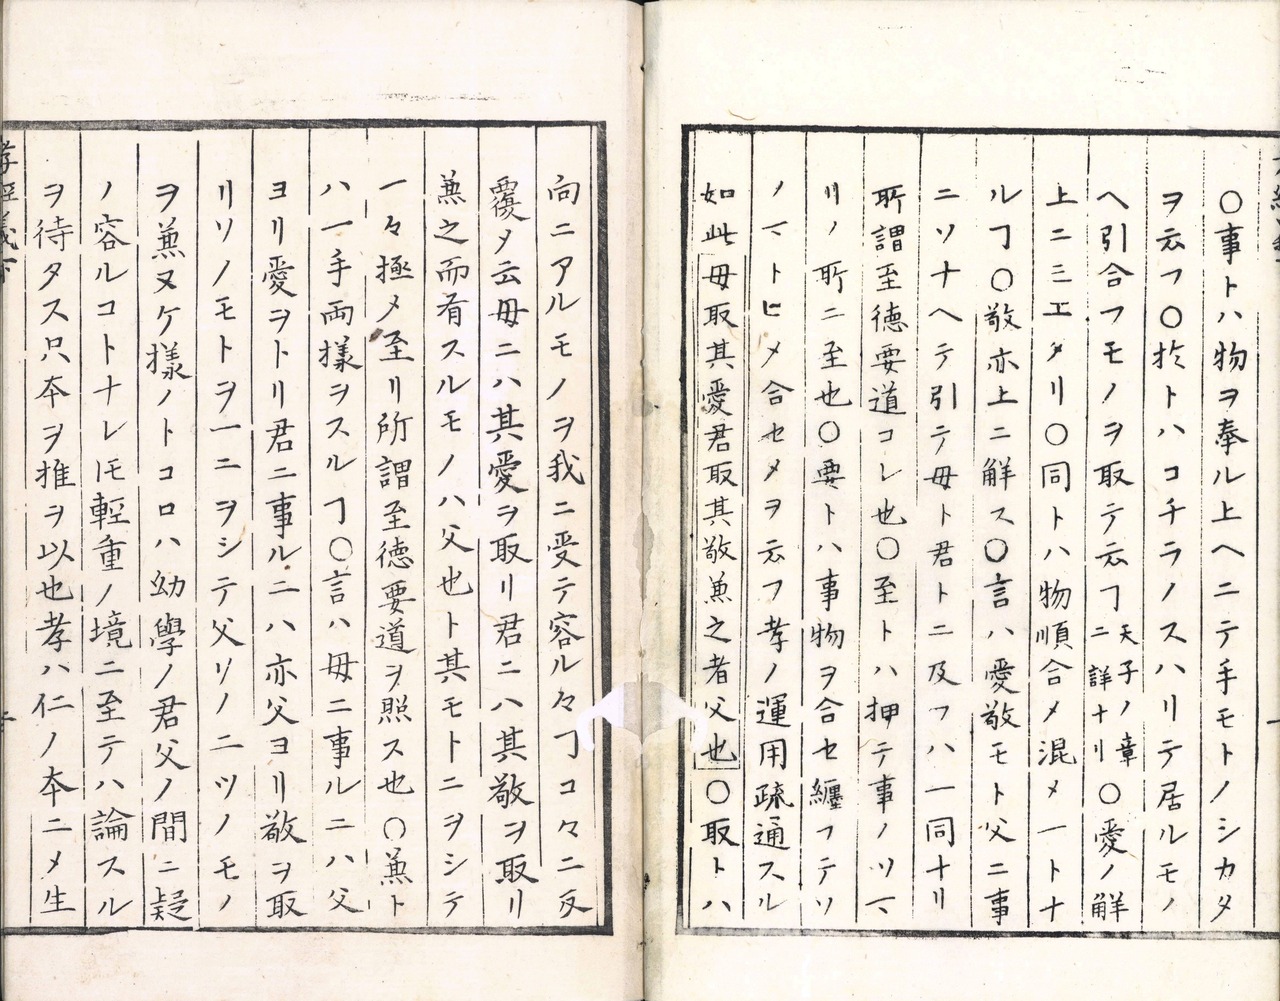 〇事トハ物ヲ奉ル上ヘニテ手モトノシカタ
ヲ云フ〇於トハコチラノスハリテ居ルモノ
ヘ引合フモノヲ取テ云ヿ天子ノ章ニ詳ナリ〇愛ノ解
上ニミエタリ〇同トハ物順合メ混メ一トナ
ルヿ〇敬亦上ニ解ス〇言ハ愛敬モト父ニ事
ニソナヘテ引テ母ト君トニ及フハ一同ナリ
所謂至徳要道コレ也〇至トハ押テ事ノツマ
リノ所ニ至也〇要トハ事物ヲ合セ纏フテソ
ノマトヒメ合セメヲ云フ孝ノ運用疏通スル
如此母取其愛君取其敬兼之者父也〇取トハ
向ニアルモノヲ我ニ受テ容ルヽヿコヽニ反
覆メ云母ニハ其愛ヲ取リ君ニハ其敬ヲ取リ
兼之而有スルモノハ父也ト其モトニヲシテ
一々極メ至リ所謂至徳要道ヲ照ス也〇兼ト
ハ一手両様ヲスルヿ〇言ハ母ニ事ルニハ父
ヨリ愛ヲトリ君ニ事ルニハ亦父ヨリ敬ヲ取
リソノモトヲ一ニヲシテ父リノ二ツノモノ
ヲ兼ヌケ様ノトコロハ幼學ノ君父ノ間ニ疑
ノ容ルコトナレ𪜈輕重ノ境ニ至テハ論スル
ヲ待タス只本ヲ推ヲ以也孝ハ仁ノ本ニメ生